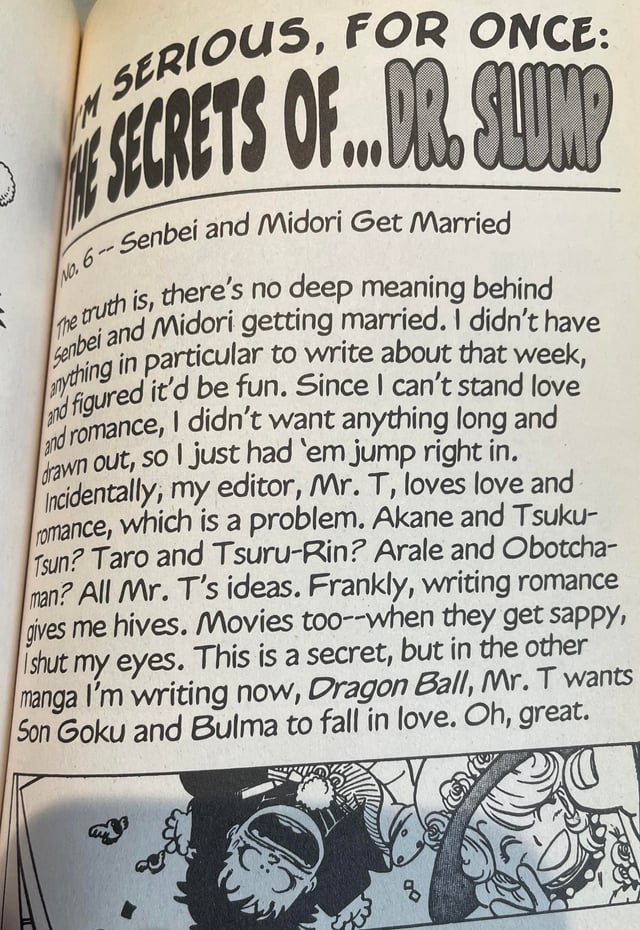 I'M SERIOUS, FOR ONCE:
THE SECRETS OF...DR. SLUMP
No. 6 -- Senbei and Midori Get Married
The truth is, there's no deep meaning behind
Senbei and Midori getting married. I didn't have
anything in particular to write about that week,
and figured it'd be fun. Since I can't stand love
and romance, I didn't want anything long and
drawn out, so I just had 'em jump right in.
Incidentally, my editor, Mr. T, loves love and
romance, which is a problem. Akane and Tsuku-
Tsun? Taro and Tsuru-Rin? Arale and Obotcha-
man? All Mr. T's ideas. Frankly, writing romance
gives me hives. Movies too--when they get sappy,
I shut my eyes. This is a secret, but in the other
manga I'm writing now, Dragon Ball, Mr. T wants
Son Goku and Bulma to fall in love. Oh, great.